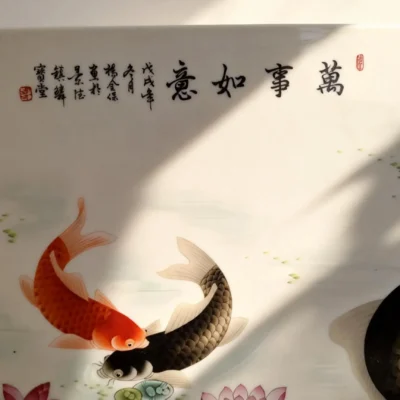 萬事如意
戊戌年
冬月
楊金保
畫於
景德
鎮
寶堂